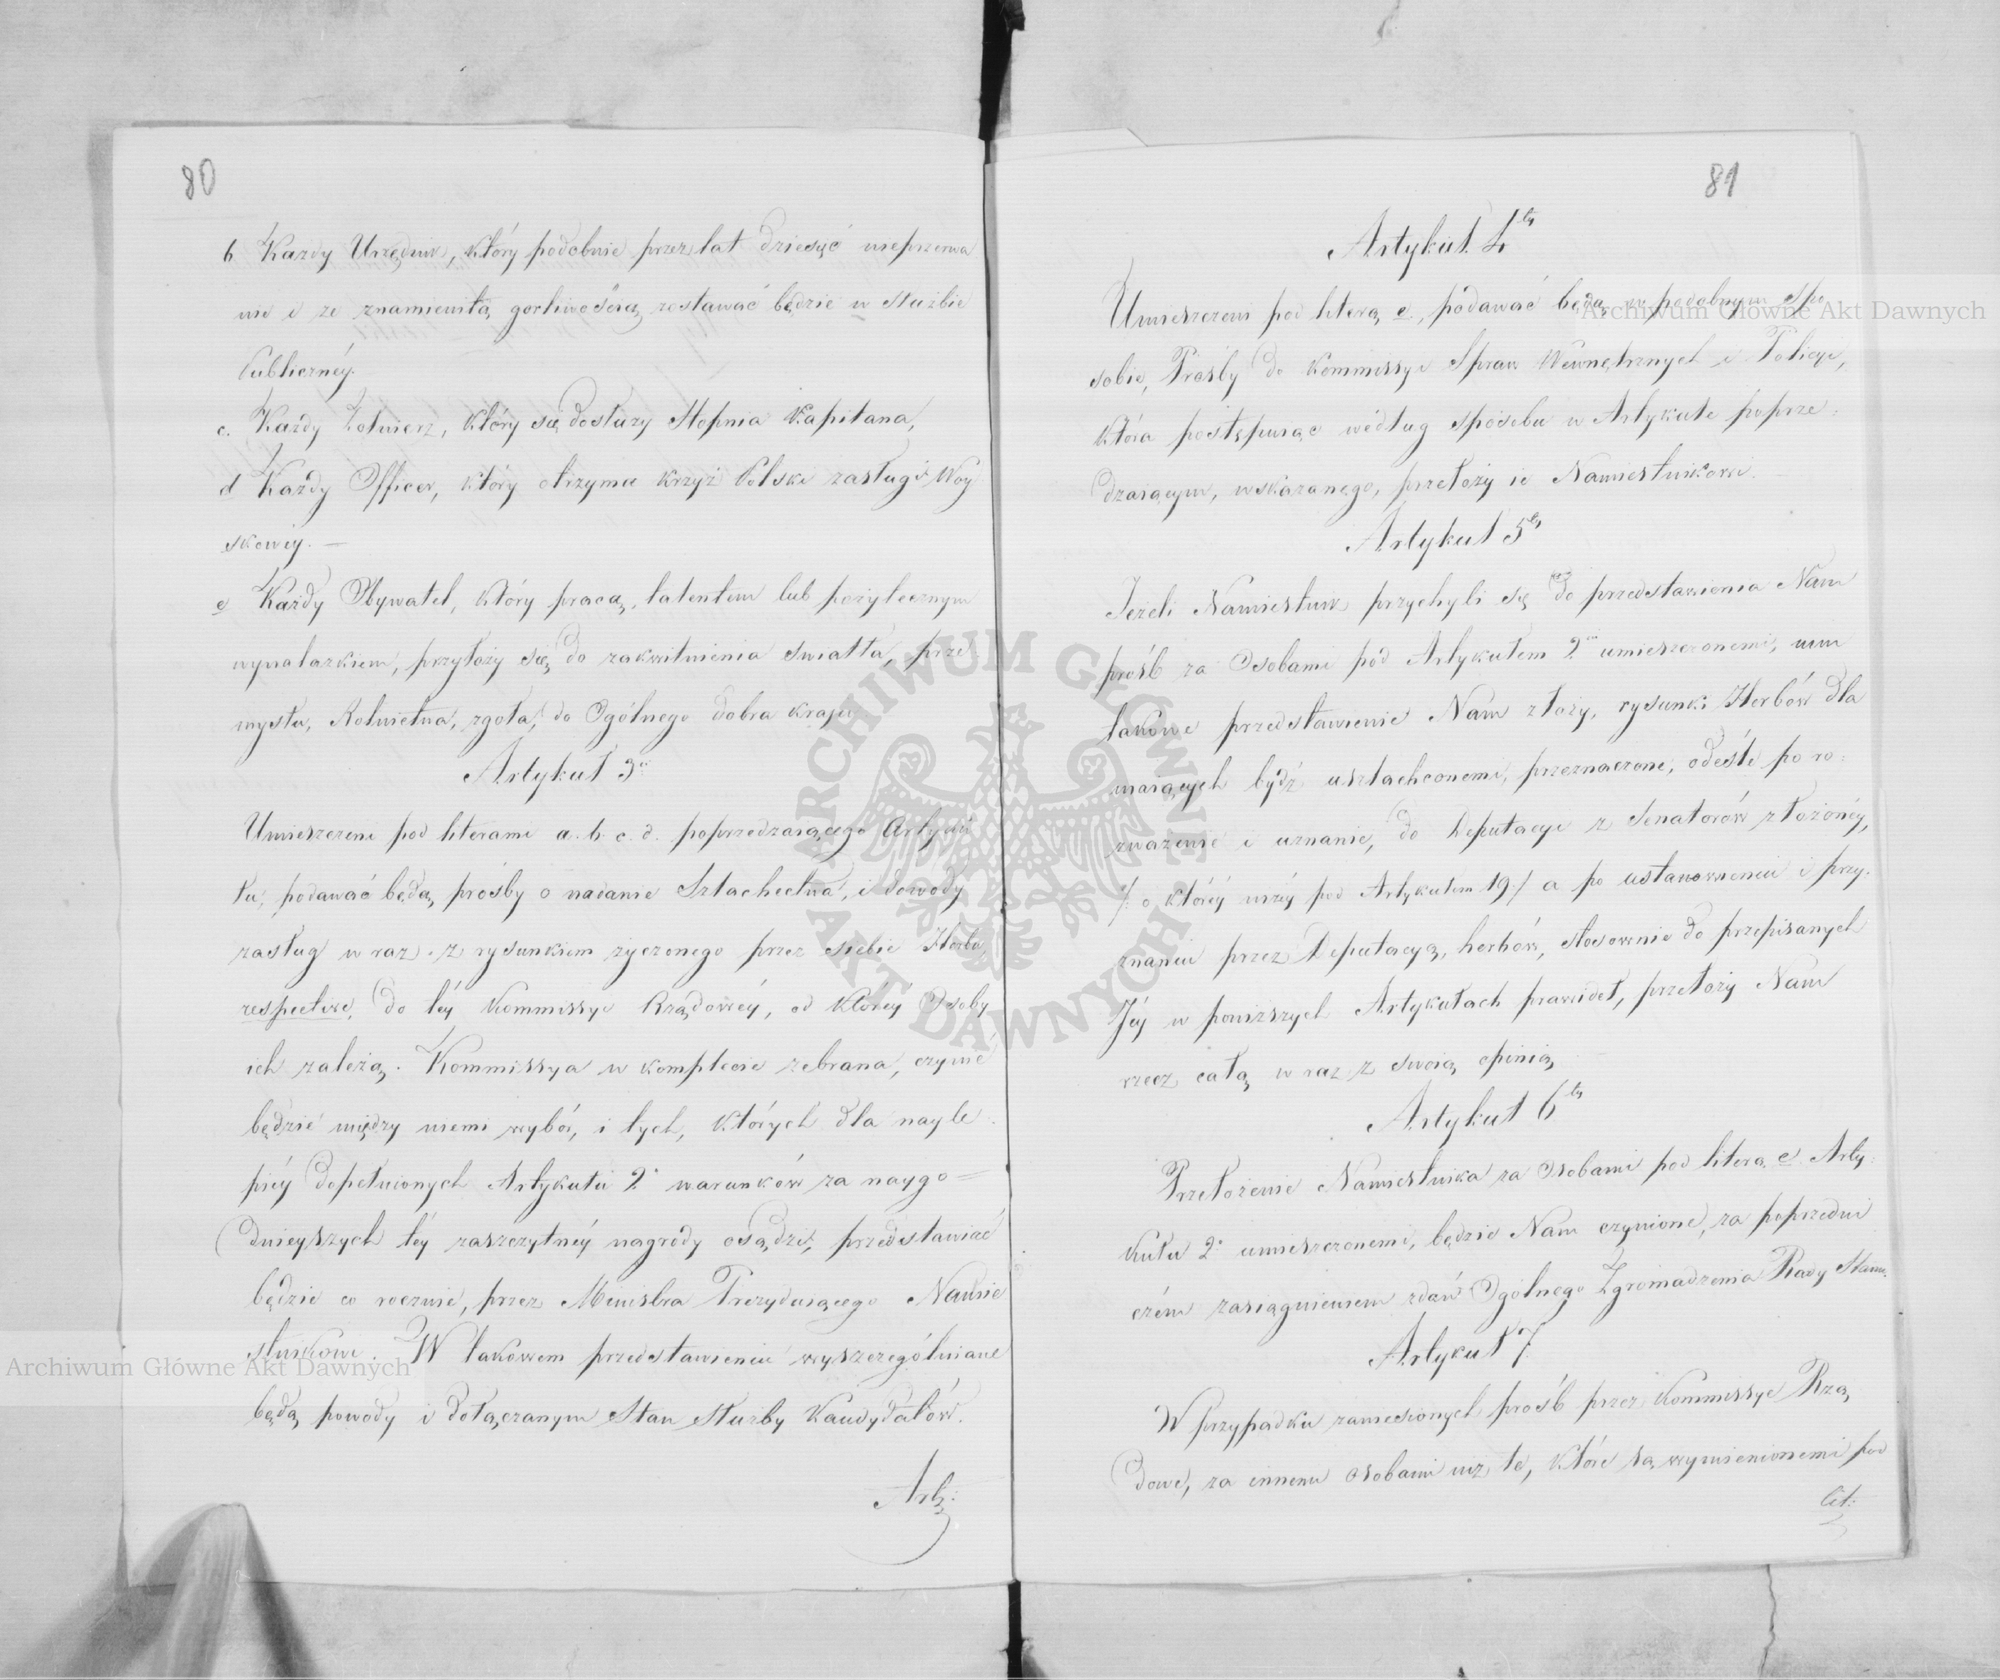 80
b Każdy Urzędnik, który podobnie przez lat dziesięć nieprzerwa
nie i ze znamienitą gorliwością zostawać będzie w służbie
Publicznéy.
c. Każdy Żołnierz, który się dosłuży Stopnia Kapitana,
d Każdy Officer, który otrzyma krzyż Polski zasługi Woy
skowéy. —
e Każdy Obywatel, który pracą, talentem lub pożytecznym
wynalazkiem, przyłoży się do zakwitnienia światła, prze
mysłu, Rolnictwa, zgoła, do Ogólnego dobra kraju
Artykuł 3ci
Umieszczeni pod literami a. b. c. d. poprzedzaiącego Artyku
łu, podawać będą prośby o nadanie Szlachectwa, i dowody
zasług wraz z rysunkiem życzonego przez siebie Herbu,
respective, do téy Kommissyi Rządowéy, od któréy Osoby
ich zależą. Kommissya w komplecie zebrana, czynić
będzie między niemi wybór, i tych, których dla nayle
piéy dopełnionych Artykułu 2o warunków za naygo=
dnieyszych téy zaszczytnéy nagrody osądzi, przedstawiać
będzie co rocznie, przez Ministra Prezyduiącego Namie
stnikowi. W takowem przedstawieniu wyszczególniane
będą powody i dołączanym Stan Służby Kandydatów.
Art:
81
Artykuł 4ty
Umieszczeni pod literą e, podawać będą w podobnym spo
sobie, Prośby do Kommissyi Spraw Wewnętrznych i Policyi,
która postępuiąc według sposobu w Artykule poprze:
dzaiącym, wskazanego, przełoży ie Namiestnikowi.
Artykuł 5ty
Jeżeli Namiestnik przychyli się do przedstawienia Nam
prośb za Osobami pod Artykułem 2m umieszczonemi, nim
takowe przedstawienie Nam złoży, rysunki Herbów dla
maiących bydź uszlachconemi, przeznaczone, odeśle po ro:
zważenie i uznanie, do Deputacyi z Senatorów złożonéy,
/: o któréy niżéy pod Artykułem 19 :/ a po ustanowieniu i przy:
znaniu przez Deputacyą, herbów, stosownie do przepisanych
Jéy w poniższych Artykułach prawideł, przełoży Nam
rzecz całą wraz z swoią opinią
Artykuł 6ty
Przełożenie Namiestnika za Osobami pod literą e Arty:
kułu 2o umieszczonemi, będzie Nam czynione, za poprzedni
czém zasiągnieniem zdań Ogólnego Zgromadzenia Rady Stanu.
Artykuł 7.
W przypadku zaniesionych prośb przez Kommissye Rzą
dowe, za innemi osobami niż te, które są wymienionemi pod
lit:
Archiwum Główne Akt Dawnych
Archiwum Główne Akt Dawnych
ARCHIWUM GŁÓWNE AKT DAWNYCH